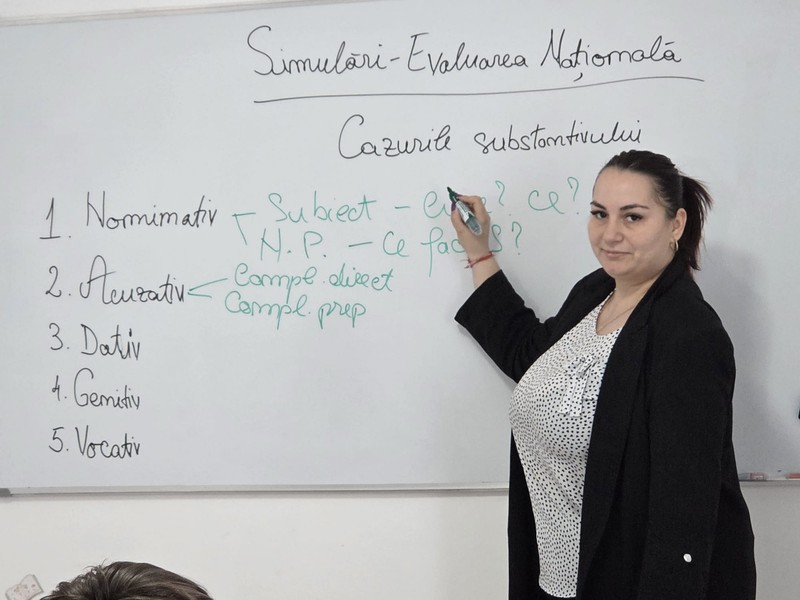 Simulări - Evaluarea Națională
Cazurile substantivului
1. Nominativ Subiect - ce?
N.P. - Ce
2. Acuzativ Compl. direct
Compl. prep
3. Dativ
4. Genitiv
5. Vocativ